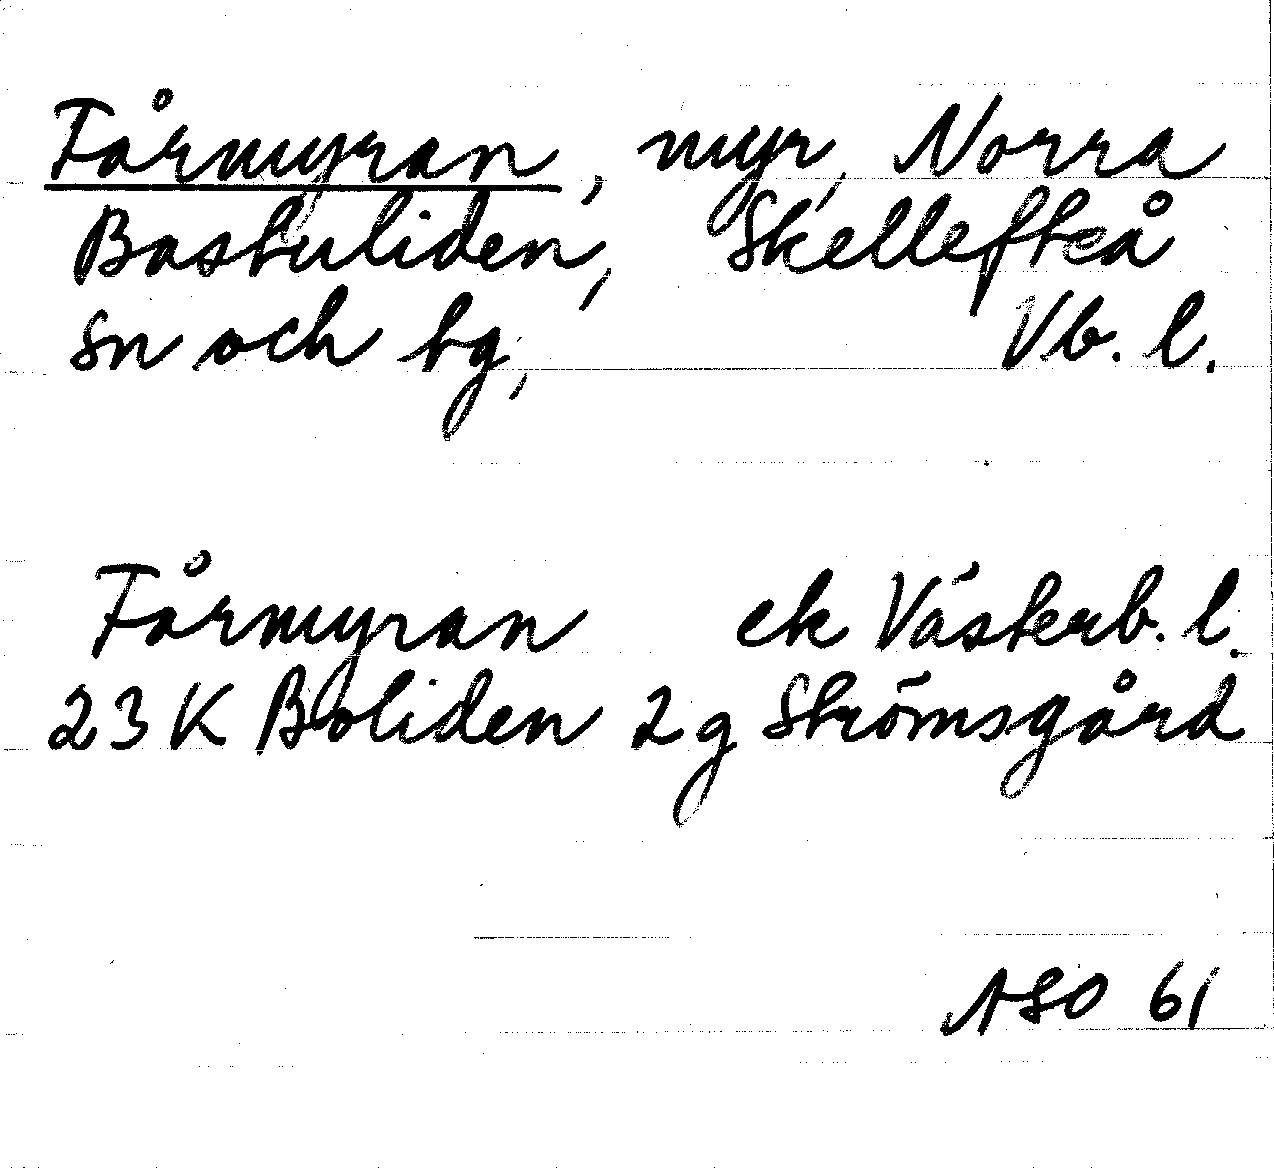 Fårmyran, myr, Norra
Bastuliden, Skellefteå
sn och tg, Vb. l.
Fårmyran ek Västerb. l.
23 K Boliden 2 g Strömsgård
ASO 61